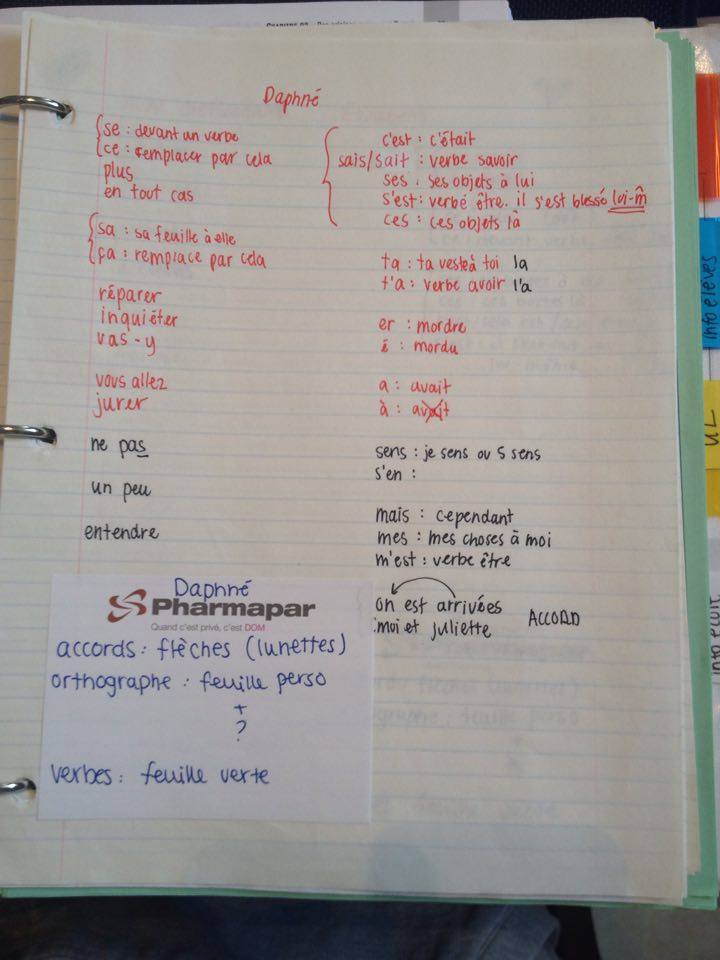 Daphné
se : devant un verbe
ce : remplacer par cela
plus
en tout cas
sa : sa feuille à elle
ça : remplace par cela
réparer
inquiéter
vas-y
vous allez
jurer
ne pas
un peu
entendre
c'est : c'était
sais/sait : verbe savoir
ses : ses objets à lui
s'est : verbe être. il s'est blessé lui-m̂
ces : ces objets là
ta : ta veste à toi la
t'a : verbe avoir l'a
er : mordre
é : mordu
a : avait
à : avait
sens : je sens ou 5 sens
s'en :
mais : cependant
mes : mes choses à moi
m'est : verbe être
on est arrivées
moi et juliette ACCORD
Daphné
Pharmapar
Quand c'est privé, c'est DOM
accords : flèches (lunettes)
orthographe : feuille perso
+
?
verbes : feuille verte
info élèves
UL